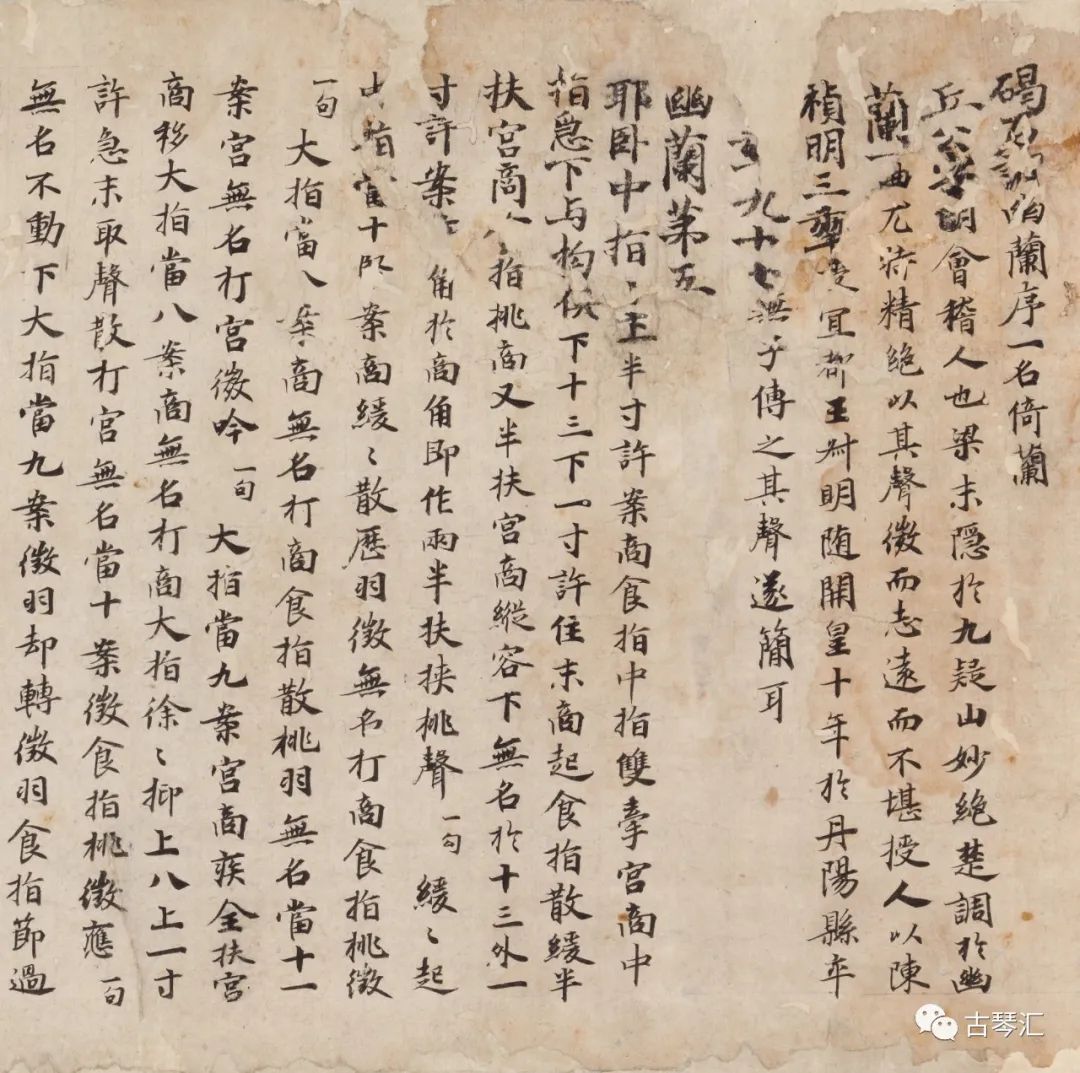 碣石調幽蘭序一名倚蘭
丘公字明會稽人也梁末隱於九疑山妙絕楚調於幽
蘭一曲尤特精絕以其聲微而志遠而不堪授人以陳
禎明三年授宜都王叔明随開皇十年於丹陽縣卒
年九十七無子傳之其聲遂簡耳
幽蘭第五
耶臥中指〻上半寸許案商食指中指雙牽宮商中
指急下与构俱下十三下一寸許住末商起食指散緩半
扶宮商食指挑商又半扶宮商縱容下無名於十三外一
寸許案商角於商角即作兩半扶挾挑聲一句 緩〻起
中指當十案商緩〻散歷羽徵無名打商食指挑徵
一句 大指當八案商無名打商食指散挑羽無名當十一
案宮無名打宮徵吟一句 大指當九案宮商疾全扶宮
商移大指當八案商無名打商大指徐〻抑上八上一寸
許急末取聲散打宮無名當十案徵食指挑徵應一句
無名不動下大指當九案徵羽却轉徵羽食指節過
古琴汇